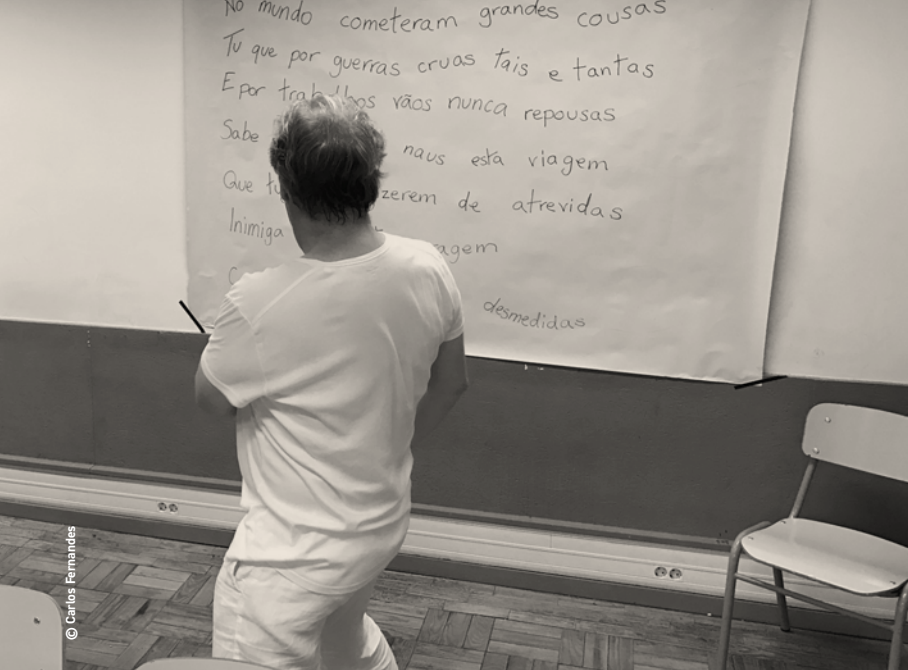 No mundo cometeram grandes cousas
Tu que por guerras cruas tais e tantas
E por trabalhos vãos nunca repousas
Sabe naus esta viagem
Que tu zerem de atrevidas
Inimiga agem
C
desmedidas
© Carlos Fernandes